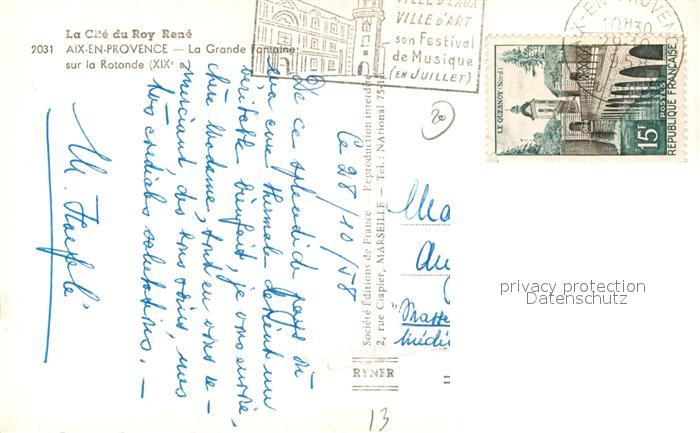 La Cité du Roy René
2031 AIX-EN-PROVENCE — La Grande Fontaine
sur la Rotonde (XIXe
VILLE D'EAUX
VILLE D'ART
son Festival
de Musique
(EN JUILLET)
AIX-EN-PROVENCE
10H30
LE QUESNOY (Nord)
15F
POSTES
REPUBLIQUE FRANÇAISE
Ce 28/10/58
De ce splendide pays où
ma cure thermale devient un
véritable bienfait, je vous envoie,
chère Madame, tout en vous re-
merciant des bons soins, mes
très cordiales salutations. —
Société Editions de France — Reproduction interdite
2, rue Gapier, MARSEILLE — Tel. : NAtional 75-1
RYNER
Ma
Au
Médi
20
13
privacy protection
Datenschutz